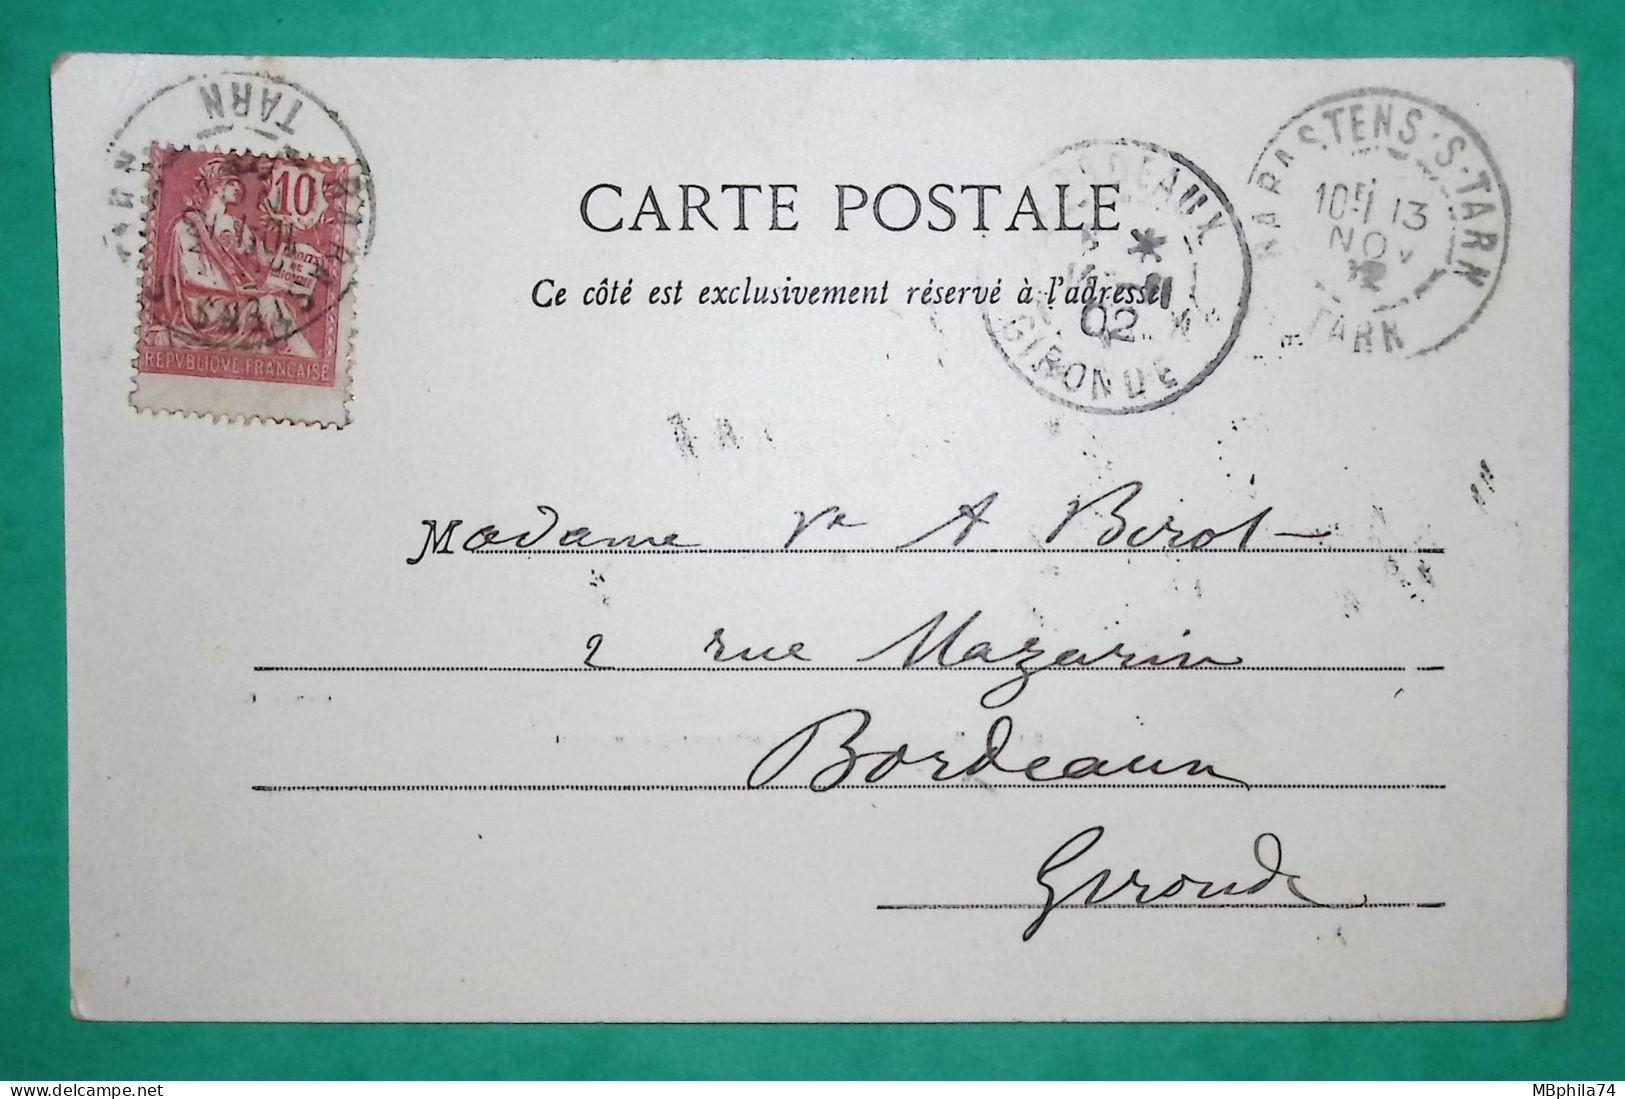 TARN
10
REPVBLIQVE FRANÇAISE
CARTE POSTALE
Ce côté est exclusivement réservé à l'adresse
BORDEAUX
02
GIRONDE
RABASTENS·S·TARN
13
NOV
TARN
Madame Vᵛᵉ A Birot
2 rue Mazarin
Bordeaux
Gironde
MBphila74